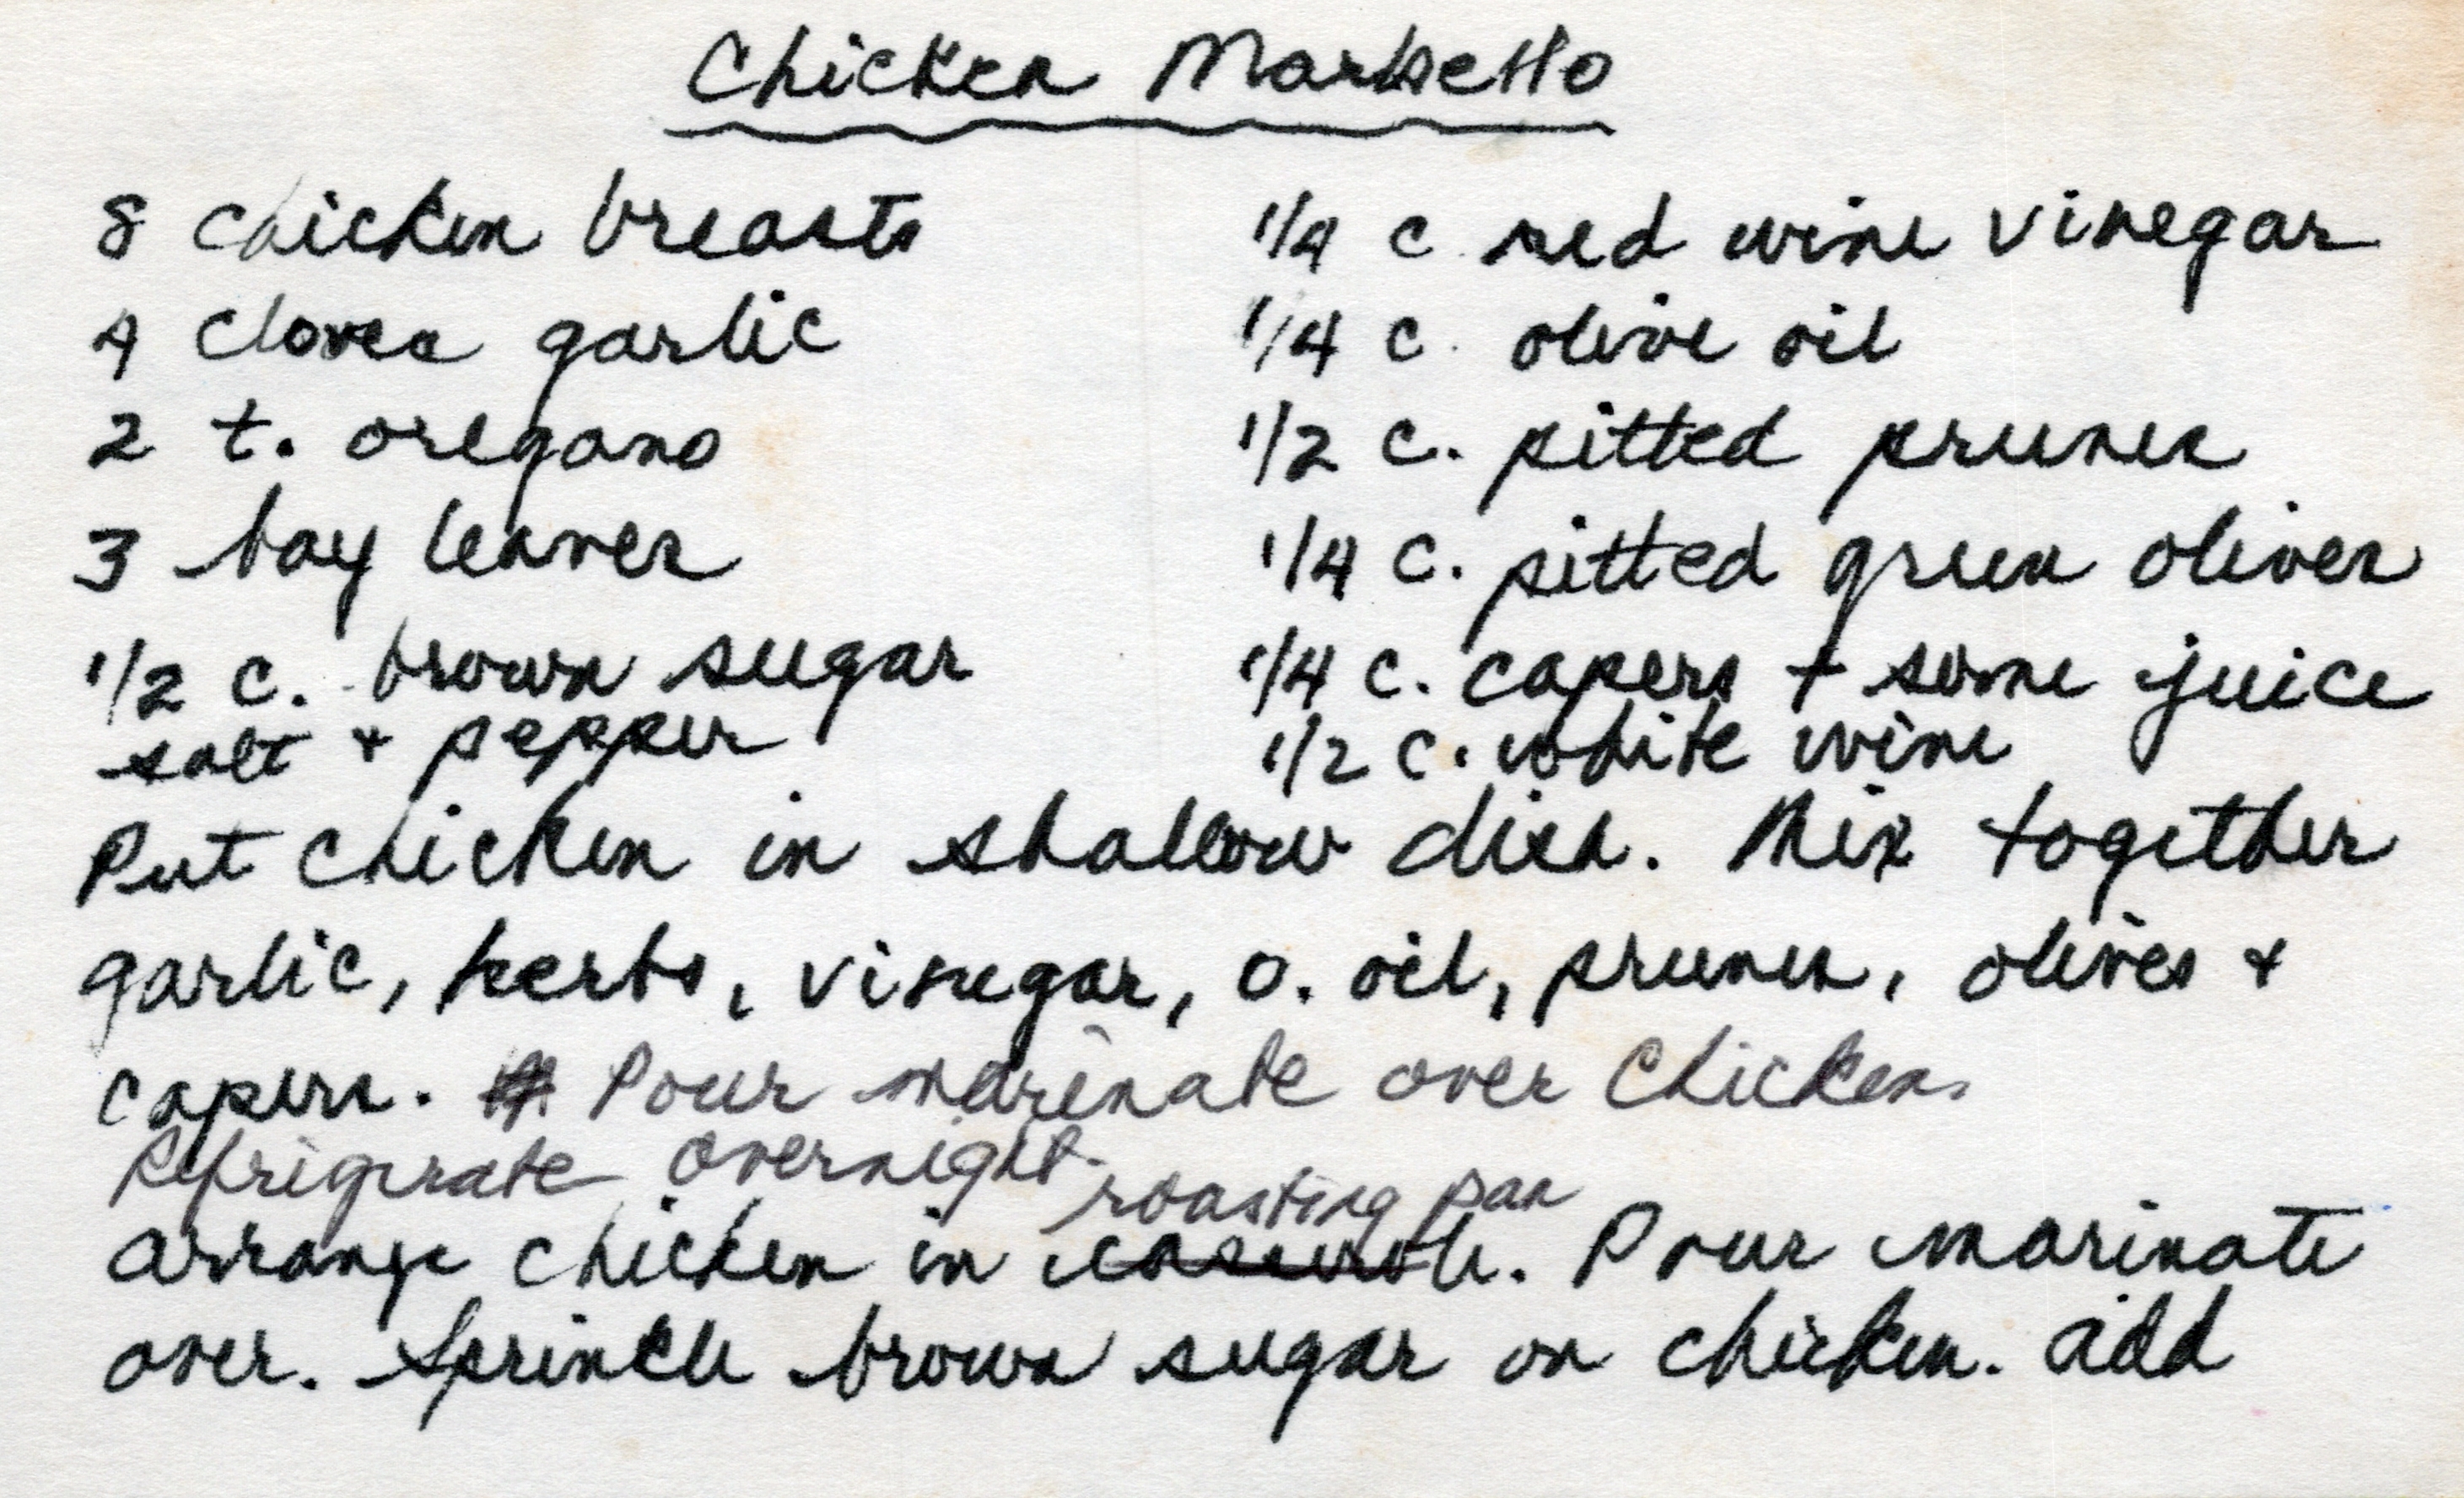 Chicken Marbello
8 chicken breasts
4 cloves garlic
2 t. oregano
3 bay leaves
1/2 c. brown sugar
salt + pepper
1/4 c. red wine vinegar
1/4 c. olive oil
1/2 c. pitted prunes
1/4 c. pitted green olives
1/4 c. capers + some juice
1/2 c. white wine
Put chicken in shallow dish. Mix together
garlic, herbs, vinegar, o. oil, prunes, olives +
capers. Pour marinate over chicken.
Refrigerate overnight.
roasting pan
Arrange chicken in casserole. Pour marinate
over. Sprinkle brown sugar on chicken. Add